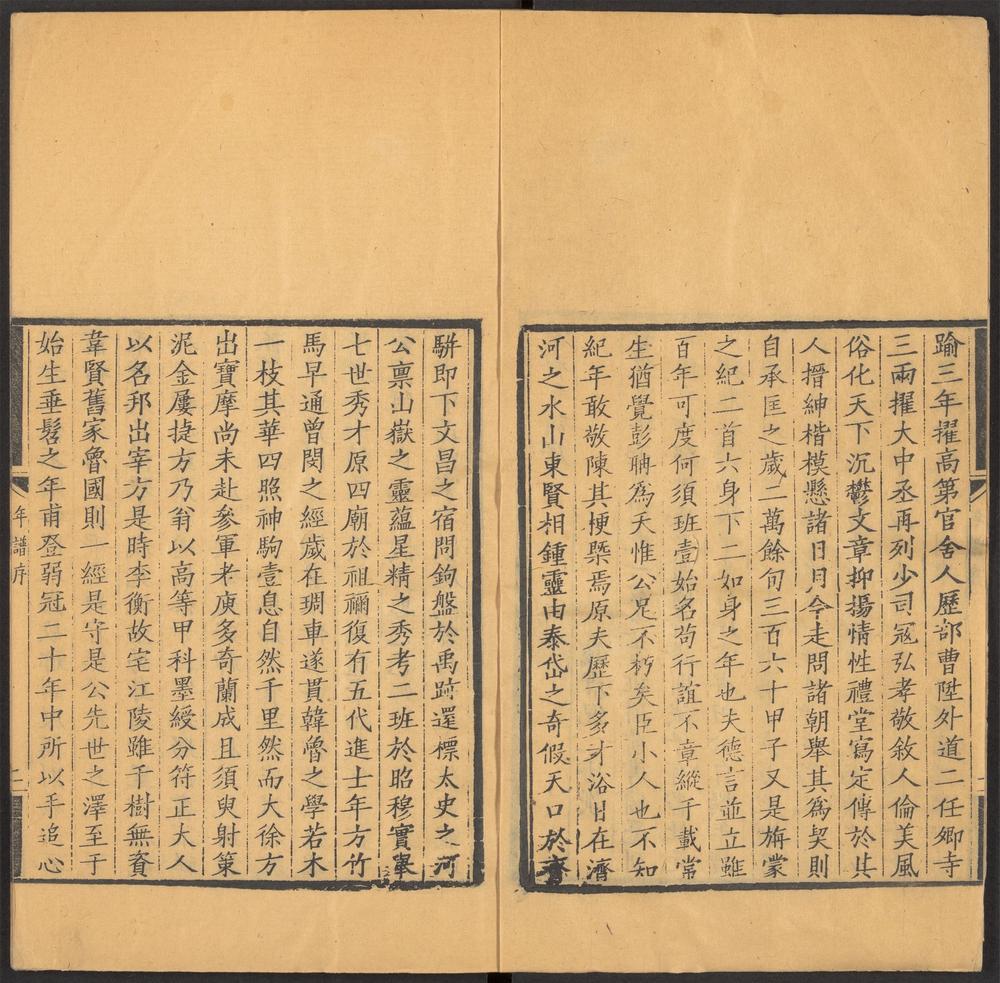 踰三年擢高第官舍人歷部曹陞外道二任卿寺
三兩擢大中丞再列少司冦弘孝敬敘人倫美風
俗化天下沉鬱文章抑揚情性禮堂寫定傳於其
人搢紳楷模懸諸日月今走問諸朝舉其為契則
自承匡之歲二萬餘旬三百六十甲子又是旃蒙
之紀二首六身下二如身之年也夫德言並立雖
百年可度何須班壹始名苟行誼不章縱千載常
生猶覺彭聃為夭惟公足不朽矣臣小人也不知
紀年敢敬陳其梗槩焉原夫歷下多才浴日在濟
河之水山東賢相鍾靈由泰岱之奇假天口於齊
駢即下文昌之宿問鉤盤於禹跡還標太史之河
公禀山嶽之靈蘊星精之秀考二班於昭穆實寧
七世秀才原四廟於祖禰復有五代進士年方竹
馬早通曾閔之經歲在琱車遂貫韓魯之學若木
一枝其華四照神駒壹息自然千里然而大徐方
出寶摩尚未赴參軍老庾多奇蘭成且須臾射策
泥金屢捷方乃翁以高等甲科墨綬分符正大人
以名邦出宰方是時李衡故宅江陵雖千樹無資
韋賢舊家魯國則一經是守是公先世之澤至于
始生垂髫之年甫登弱冠二十年中所以手追心
年譜序
二